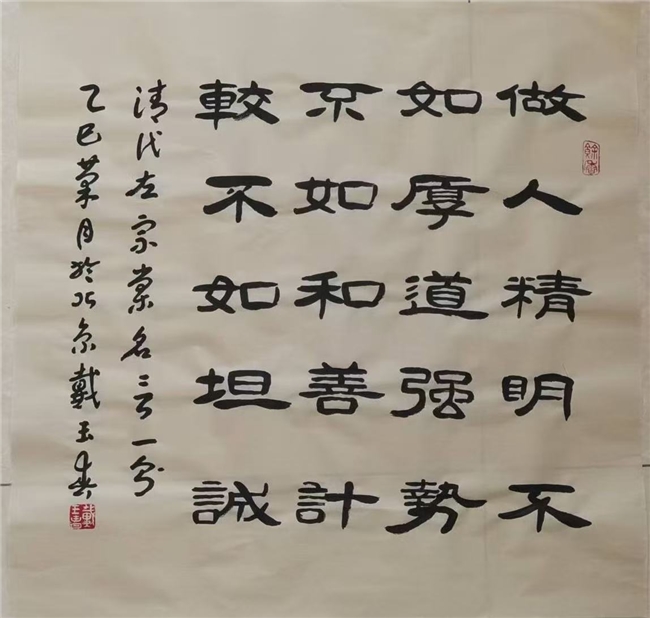 做人精明不
如厚道强勢
不如和善計
較不如坦誠
清代左宗棠名言一
乙巳菊月於北京戴玉春